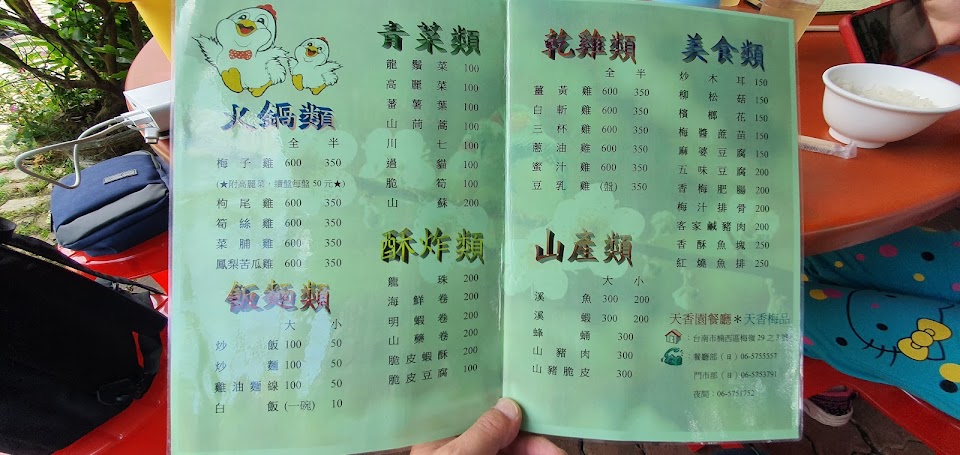 火鍋類
全 半
梅子雞 600 350
(★附高麗菜，續盤每盤50元★)
枸尾雞 600 350
筍絲雞 600 350
菜脯雞 600 350
鳳梨苦瓜雞 600 350
飯麵類
大 小
炒飯 100 50
炒麵 100 50
雞油麵線 100 50
白飯(一碗) 10
青菜類
龍鬚菜 100
高麗菜 100
蕃薯葉 100
山茼蒿 100
川七 100
過貓 100
脆筍 100
山蘇 200
酥炸類
龍珠 200
海鮮卷 200
明蝦卷 200
山藥卷 200
脆皮蝦酥 200
脆皮豆腐 100
乾雞類
全 半
薑黃雞 600 350
白斬雞 600 350
三杯雞 600 350
蔥油雞 600 350
蜜汁雞 600 350
豆乳雞(盤) 350
山產類
大 小
溪魚 300 200
溪蝦 300 200
蜂蛹 300
山豬肉 300
山豬脆皮 300
美食類
炒木耳 150
柳松菇 150
檳榔花 150
梅醬蔴苗 150
麻婆豆腐 150
五味豆腐 200
香梅肥腸 200
梅汁排骨 200
客家鹹豬肉 200
香酥魚塊 250
紅燒魚排 250
天香園餐廳＊天香梅品
：台南市楠西區梅嶺29之7號
：餐廳部(日)06-5755557
門市部(日)06-5753791
夜間：06-5751752